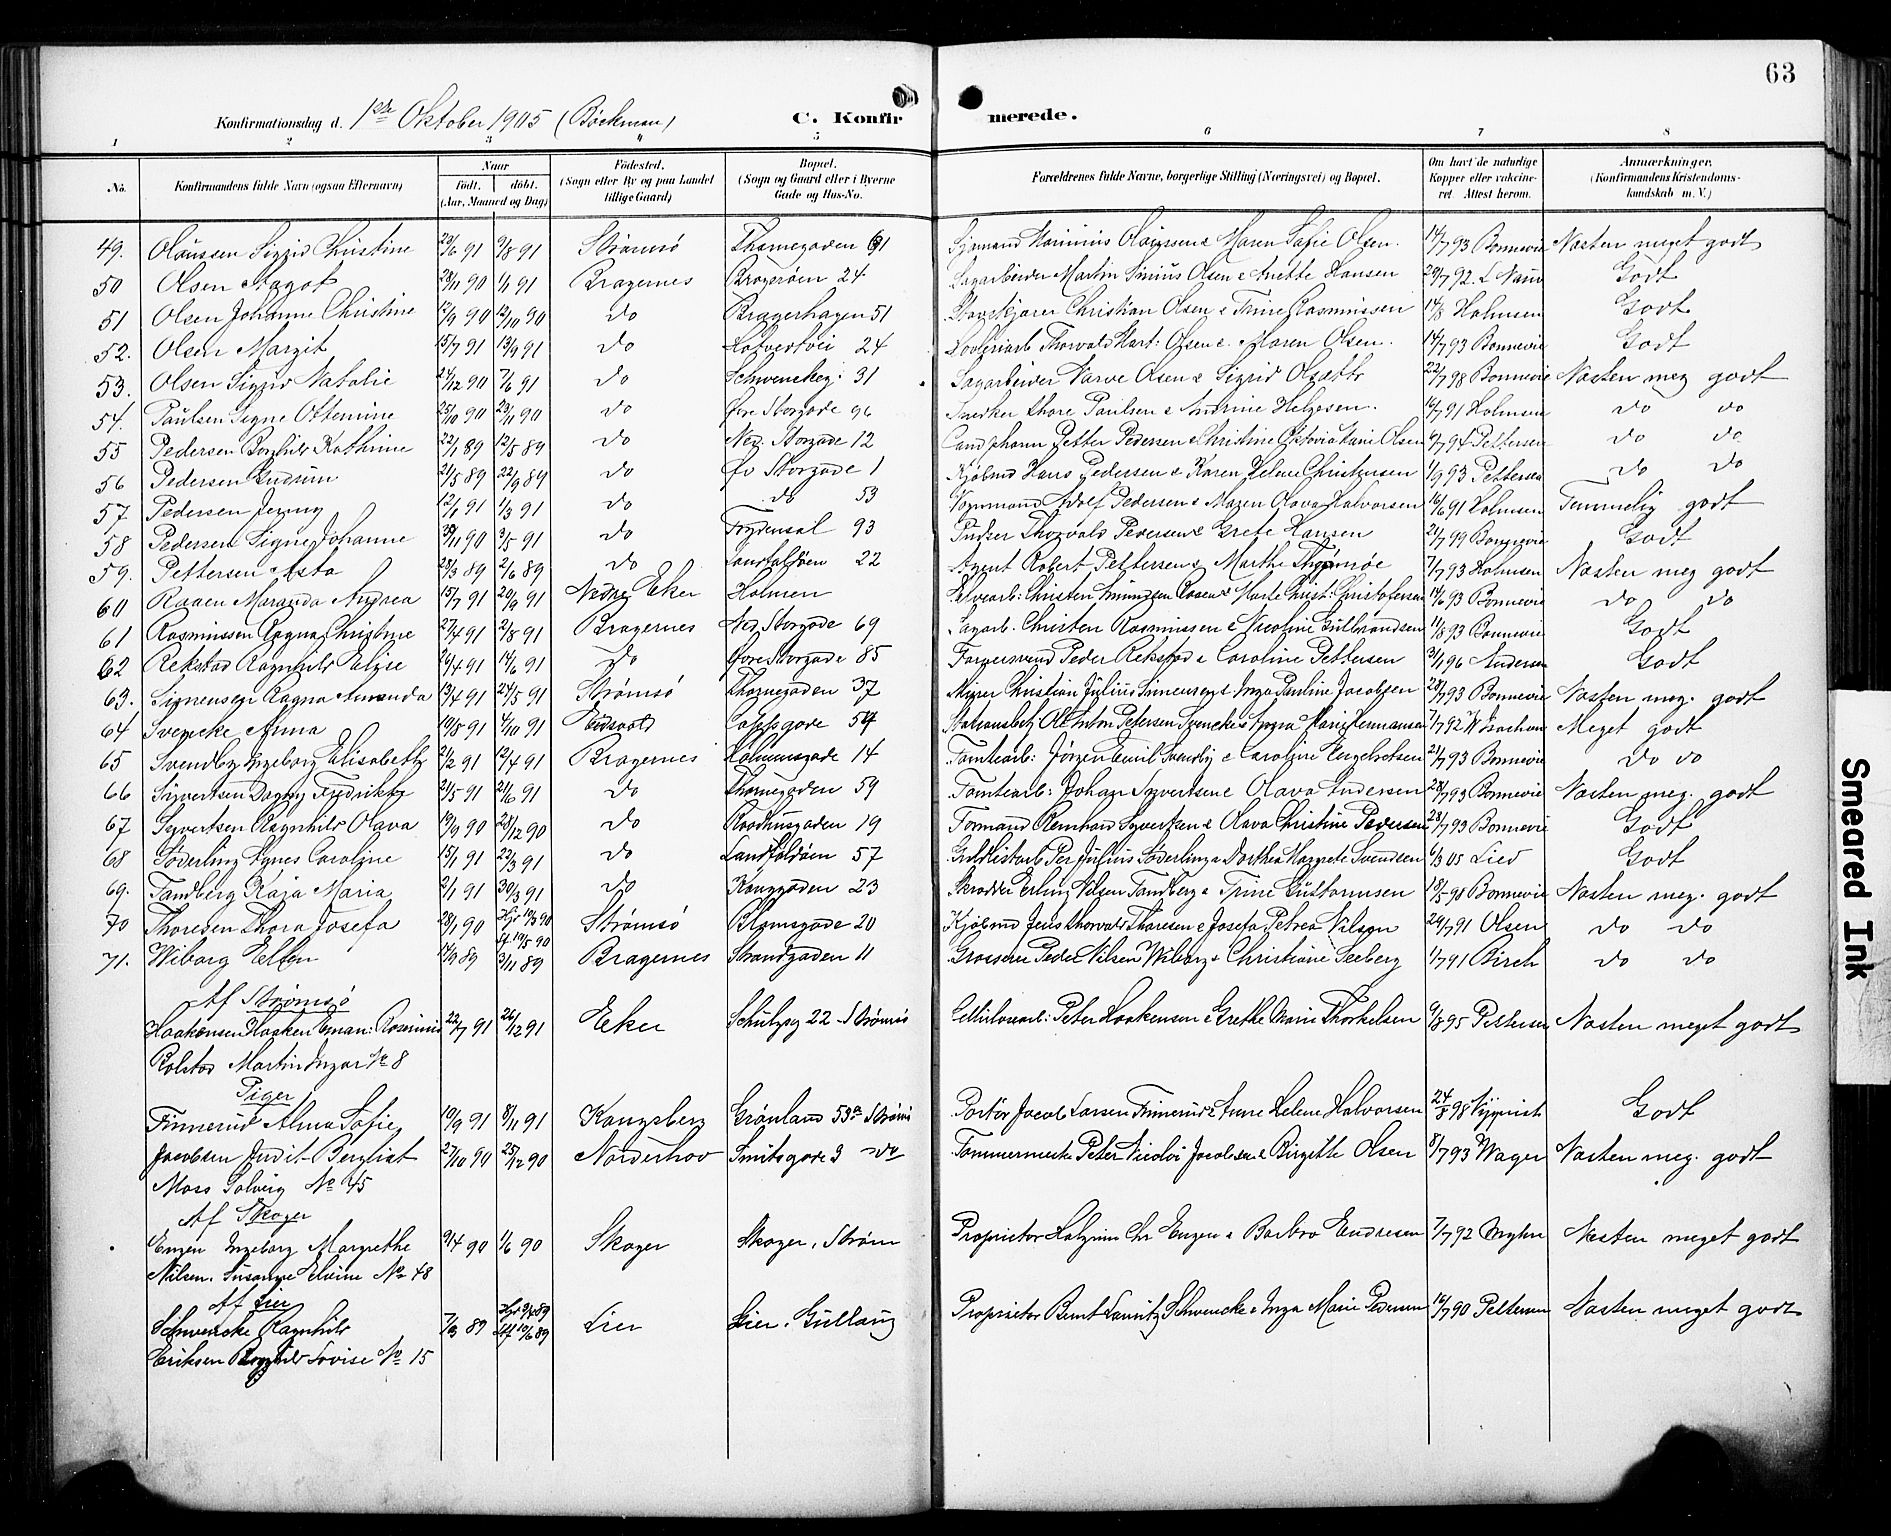 63
Konfirmationsdag d. 1ste Oktober 1905 (Böckman) C. Konfirmerede.
1 2 3 4 5 6 7 8
No. Konfirmandens fulde Navn (ogsaa Efternavn) Naar födt. döbt. (Aar, Maaned og Dag) Födested. (Sogn eller By og paa Landet tillige Gaard) Bopæl. (Sogn og Gaard eller i Byerne Gade og Hus-No. Forældrenes fulde Navne, borgerlige Stilling (Næringsvei) og Bopæl. Om havt de naturlige Kopper eller vakcineret. Attest herom. Anmærkninger. (Konfirmandens Kristendomskundskab m. V.)
49. Olaussen Sigrid Christine 29/6 91 9/8 91 Strömsö Thornegaden 61 Olaussen & Maren Sofie Olsen. 14/7 93 Bonnevie Næsten meget godt
50 Olsen Dagot 28/11 90 1/1 91 Bragernes Bragerøen 24 Sagarbeider Martin Olsen & Anette Hansen 29/7 92. Godt
51 Olsen Johanne Christine 12/9 90 12/10 90 do Bragerhagen 51 Christian Olsen & Trine Rasmussen 14/8 Holmsen Godt
52. Olsen Margit 15/7 91 13/9 91 do 24 Thorvald Mart: Olsen & Maren Olsen. 14/7 93 Bonnevie Godt
53. Olsen Sigrid Natalie 27/12 90 7/6 91 do Schwenckeg. 31 Sagarbeider Narve Olsen & Sigrid 22/7 98 Bonnevie Næsten meg godt
54. Paulsen Signe Ottemine 25/10 90 23/11 90 do Øvre Storgade 96 Snedker Thore Paulsen & Helgesen. 16/7 91 Holmsen do do
55 Pedersen Borghild Kathrine 22/1 89 12/5 89 do Ned. Storgade 12 Petter Pedersen & Christine Oktovia Marie Olsen 6/7 94 Pettersen do do
56 Pedersen Gudrun 21/5 89 22/9 89 do Øv Storgade 1 Kjøbmd Hans Pedersen & Karen Helene Christensen 1/9 93 Pettersen do do
57 Pedersen Jenny 12/1 91 1/3 91 do do 53 Vognmand Adolf Pedersen & Maren Olava Halvorsen 16/6 91 Holmsen Temmelig godt
58 Pedersen Signe Johanne 30/11 90 3/5 91 do Frydensal 93 Thorvald Pedersen & Grete Hansen 21/7 99 Bonnevie Godt
59. Pettersen Asta 28/3 89 2/6 89 do Landfaldøen 22 Agent Robert Pettersen & Marthe 7/7 93 Holmsen Næsten meg godt
60 Raaen Maranda Andrea 15/7 91 20/9 91 Nedre Eker Holmen Christen & Marte Christ: Christofersen 14/6 93 Bonnevie do do
61 Rasmussen Ragna Christine 27/4 91 2/8 91 Bragernes Ned Storgade 69 Sagarb. Christen Rasmussen & Nicoline Gulbrandsen 11/8 93 Bonnevie Godt
62 Rekstad Ragnhild Elise 26/4 91 14/6 91 do Øvre Storgade 85 Peder Rekstad & Caroline Pettersen 3/1 96 Andersen Godt
63. Simensen Ragna Amanda 13/4 91 24/5 91 Strømsö Thornegaden 37 Christian Julius Simensen & Inga Pauline Jacobsen 28/7 93 Bonnevie Næsten meg. godt
64 Svencke Anna 10/8 91 4/10 91 Eidsvold Cappsgade 54 Ole Anton Petersen Svencke & Marie Hermansen 7/7 92 Meget godt
65 Svendby Ingeborg Elisabeth 21/2 91 12/4 91 Bragernes 14 Tomtearb: Jørgen Emil Svendby & Caroline Engebretsen 21/7 93 Bonnevie do do
66 Syvertsen Dagny Fredrikke 21/5 91 21/6 91 do Thornegaden 59 Tomtearb: Johan Syvertsen & Olava Andersen 28/7 93 Bonnevie Næsten meg. godt
67 Syvertsen Ragnhild Olava 19/9 90 28/12 90 do Raadhusgaden 19 Formand Reinhard Syvertsen & Olava Christine Pedersen 28/7 93 Bonnevie Godt
68 Søderling Agnes Caroline 15/1 91 22/3 91 do Landfaldøen 57 Guldlistarb. Per Julius Søderling & Dorthea Margrete Svendsen 6/3 05 Lied Godt
69. Tandberg Kaja Maria 2/1 91 30/3 91 do Konggaden 23 Skrædder Erling Nilsen Tandberg & Trine Guttormsen 18/5 98 Bonnevie Næsten meg. godt
70 Thoresen Thora Josefa 28/1 90 Hjd 10/3 90 Strømsö Blomsgade 20 Kjøbmd Jens Thorvald Thoresen & Josefa Petrea Nilsen 24/7 91 Olsen do do
St 19/5 90
71. Wiborg Ellen 17/9 89 3/11 89 Bragernes Strandgaden 11 Grosserer Peder Nilsen Wiborg & Christiane Seeberg 1/7 91 Birch do do
Af Strömsö
Haakensen Haaken Eman: Rosenius 22/7 91 26/12 91 Eker Schultzsg 22 - Strömsö Cellulosearb: Peter Haakensen & Grethe Marie Thorkelsen 9/8 95 Pettersen Næsten meget godt
Rolstad Martin Ingar No 8
Piger
Finnerud Alma Sofie 10/9 91 8/11 91 Kongsberg Grönland 53 a Strömsö Portör Jacob Larsen Finnerud & Anne Helene Halvorsen 24/8 98 Nyqvist Godt
Jacobsen Judit Bergliot 27/10 90 25/12 90 Norderhov Smitsgade 3 do Tømmermester Peter Nicolai Jacobsen & Birgitte Olsen 8/7 93 Wager Næsten meg. godt
Moss Solveig No 45
Af Skoger
Engen Ingeborg Margrethe 9/4 90 1/6 90 Skoger Skoger, Ström Proprietær Chr Engen & Barbro Endresen 7/7 92 Næsten meget godt
Nilsen. Susanne Elvine No 48
Af Lier
Schwencke Ragnhild 7/3 89 Hjd 9/4 89 Lier Lier. Gullaug Proprietær Bernt Lauritz Schwencke & Inga Marie Pedersen 16/7 90 Pettersen Næsten meget godt
St 10/6 89
Eriksen Ragnhild Lovise No 15
Smeared Ink